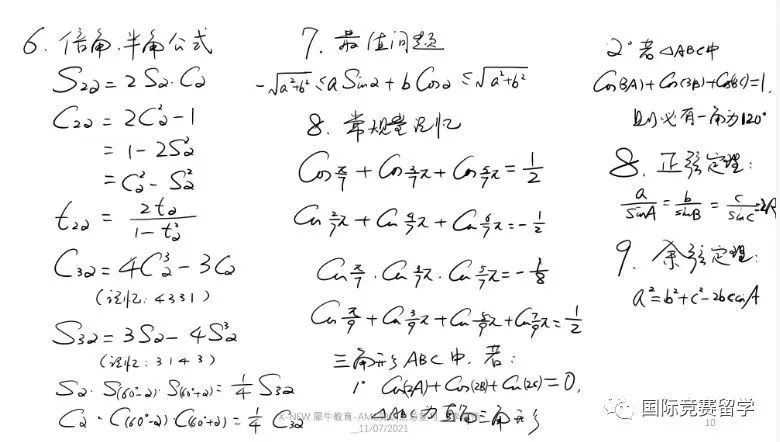 6. 倍角.半角公式
S2α = 2Sα·Cα
C2α = 2Cα² - 1
= 1 - 2Sα²
= Cα² - Sα²
t2α = 2tα / 1 - tα²
C3α = 4Cα³ - 3Cα
(记忆: 4331)
S3α = 3Sα - 4Sα³
(记忆: 3143)
Sα · S(60°-α) · S(60°+α) = 1/4 S3α
Cα · C(60°-α) · C(60°+α) = 1/4 C3α
7. 最值问题
-√a²+b² ≤ a Sinα + b Cosα ≤ √a²+b²
8. 常规量记忆
Cos π/7 + Cos 3/7 π + Cos 5/7 π = 1/2
Cos 2/7 π + Cos 4/7 π + Cos 6/7 π = - 1/2
Cos π/7 · Cos 3/7 π · Cos 5/7 π = - 1/8
Cos π/9 + Cos 3/9 π + Cos 5/9 π + Cos 7/9 π = 1/2
三角形ABC中, 若:
1° Cos(2A) + Cos(2B) + Cos(2C) = 0,
△ABC为直角三角形
2° 若△ABC中
Cos(3A) + Cos(3B) + Cos(3C) = 1,
则必有一角为120°
8. 正弦定理:
a/sinA = b/sinB = c/sinC = 2R
9. 余弦定理:
a² = b² + c² - 2bc cosA
X-NEW 犀牛教育-AM
11/07/2021
国际竞赛留学
10